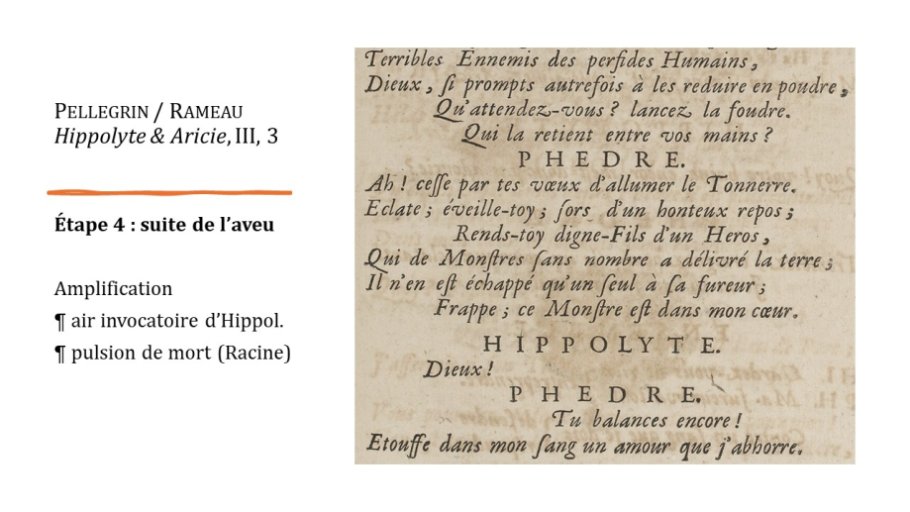 PELLEGRIN / RAMEAU
Hippolyte & Aricie, III, 3
Étape 4 : suite de l’aveu
Amplification
¶ air invocatoire d’Hippol.
¶ pulsion de mort (Racine)
Terribles Ennemis des perfides Humains,
Dieux, ſi prompts autrefois à les reduire en poudre,
Qu'attendez-vous ? lancez la foudre.
Qui la retient entre vos mains ?
PHEDRE.
Ah ! ceſſe par tes vœux d'allumer le Tonnerre.
Eclate ; éveille-toy ; ſors d'un honteux repos ;
Rends-toy digne-Fils d'un Heros,
Qui de Monſtres ſans nombre a délivré la terre ;
Il n'en eſt échappé qu'un ſeul à ſa fureur ;
Frappe ; ce Monſtre eſt dans mon cœur.
HIPPOLYTE.
Dieux !
PHEDRE.
Tu balances encore !
Etouffe dans mon ſang un amour que j'abhorre.